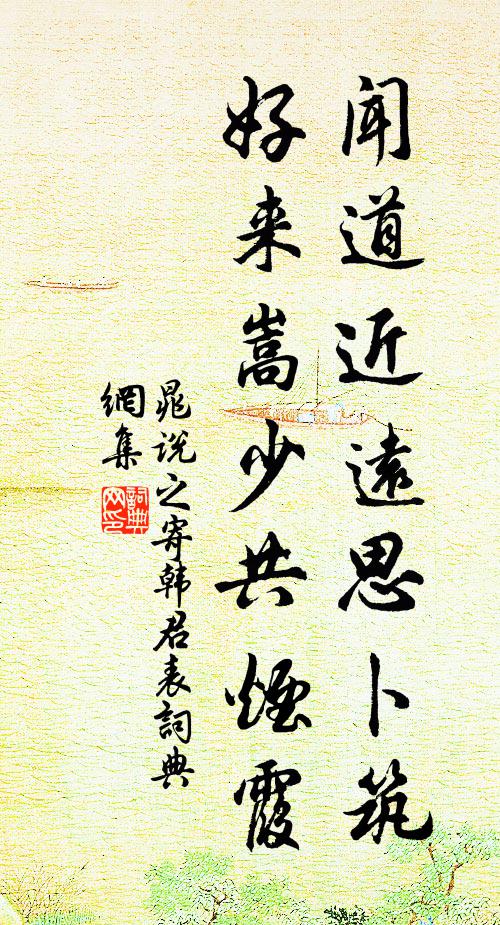 闻道近遠思卜筑
好来嵩少共煙霞
晁说之寄韩君表詞典
網集
詞典
网印